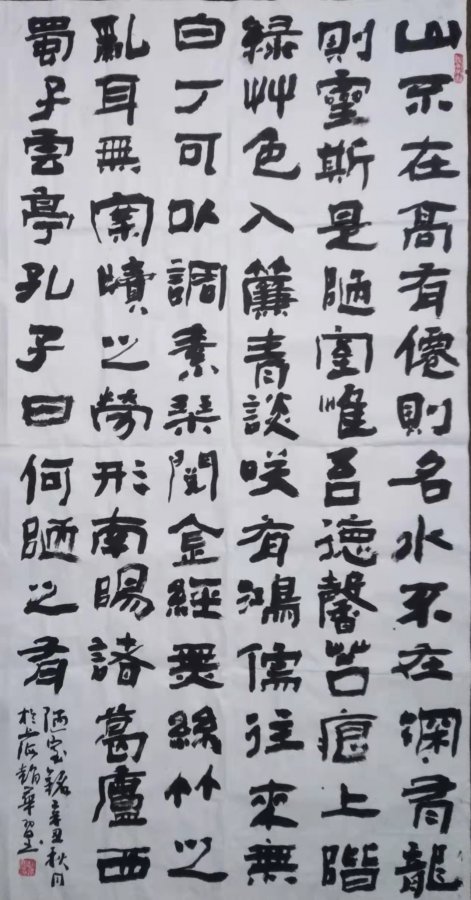 山不在高有僊則名水不在深有龍
則靈斯是陋室惟吾德馨苔痕上階
綠艸色入簾青談咲有鴻儒往來無
白丁可以調素琴閱金經無絲竹之
亂耳無案牘之勞形南陽諸葛廬西
蜀子雲亭孔子曰何陋之有
陋室銘辛丑秋月
於